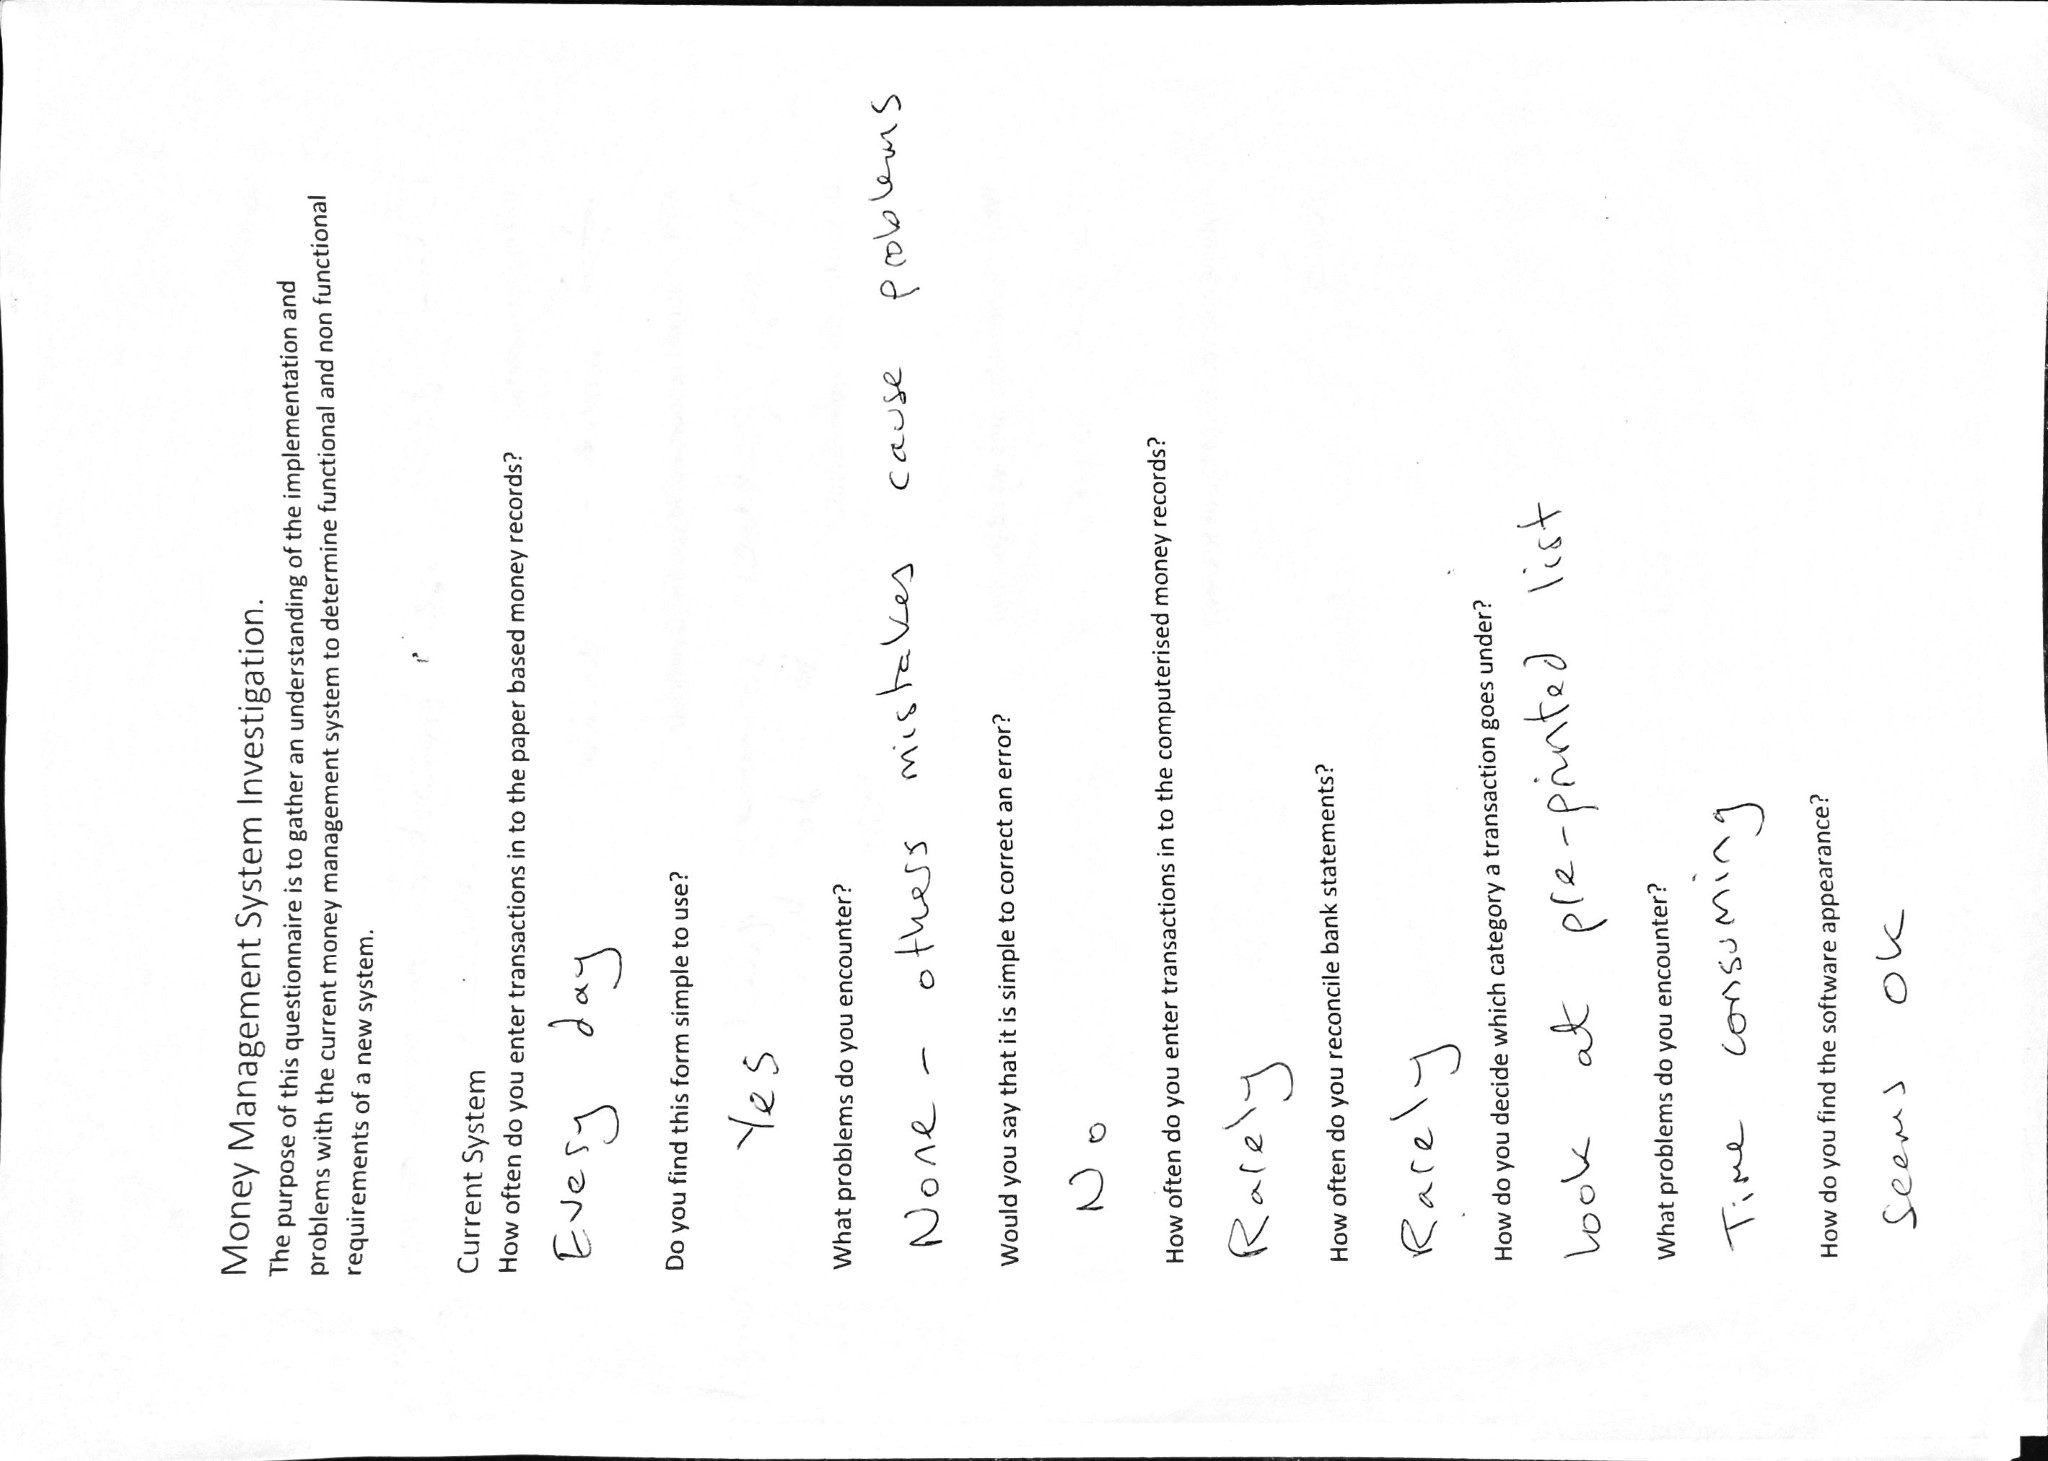 Money Management System Investigation.
The purpose of this questionnaire is to gather an understanding of the implementation and
problems with the current money management system to determine functional and non functional
requirements of a new system.
Current System
How often do you enter transactions in to the paper based money records?
Every day
Do you find this form simple to use?
Yes
What problems do you encounter?
None - others mistakes cause problems
Would you say that it is simple to correct an error?
No
How often do you enter transactions in to the computerised money records?
Rarely
How often do you reconcile bank statements?
Rarely
How do you decide which category a transaction goes under?
Look at pre-printed list
What problems do you encounter?
Time consuming
How do you find the software appearance?
Seems ok